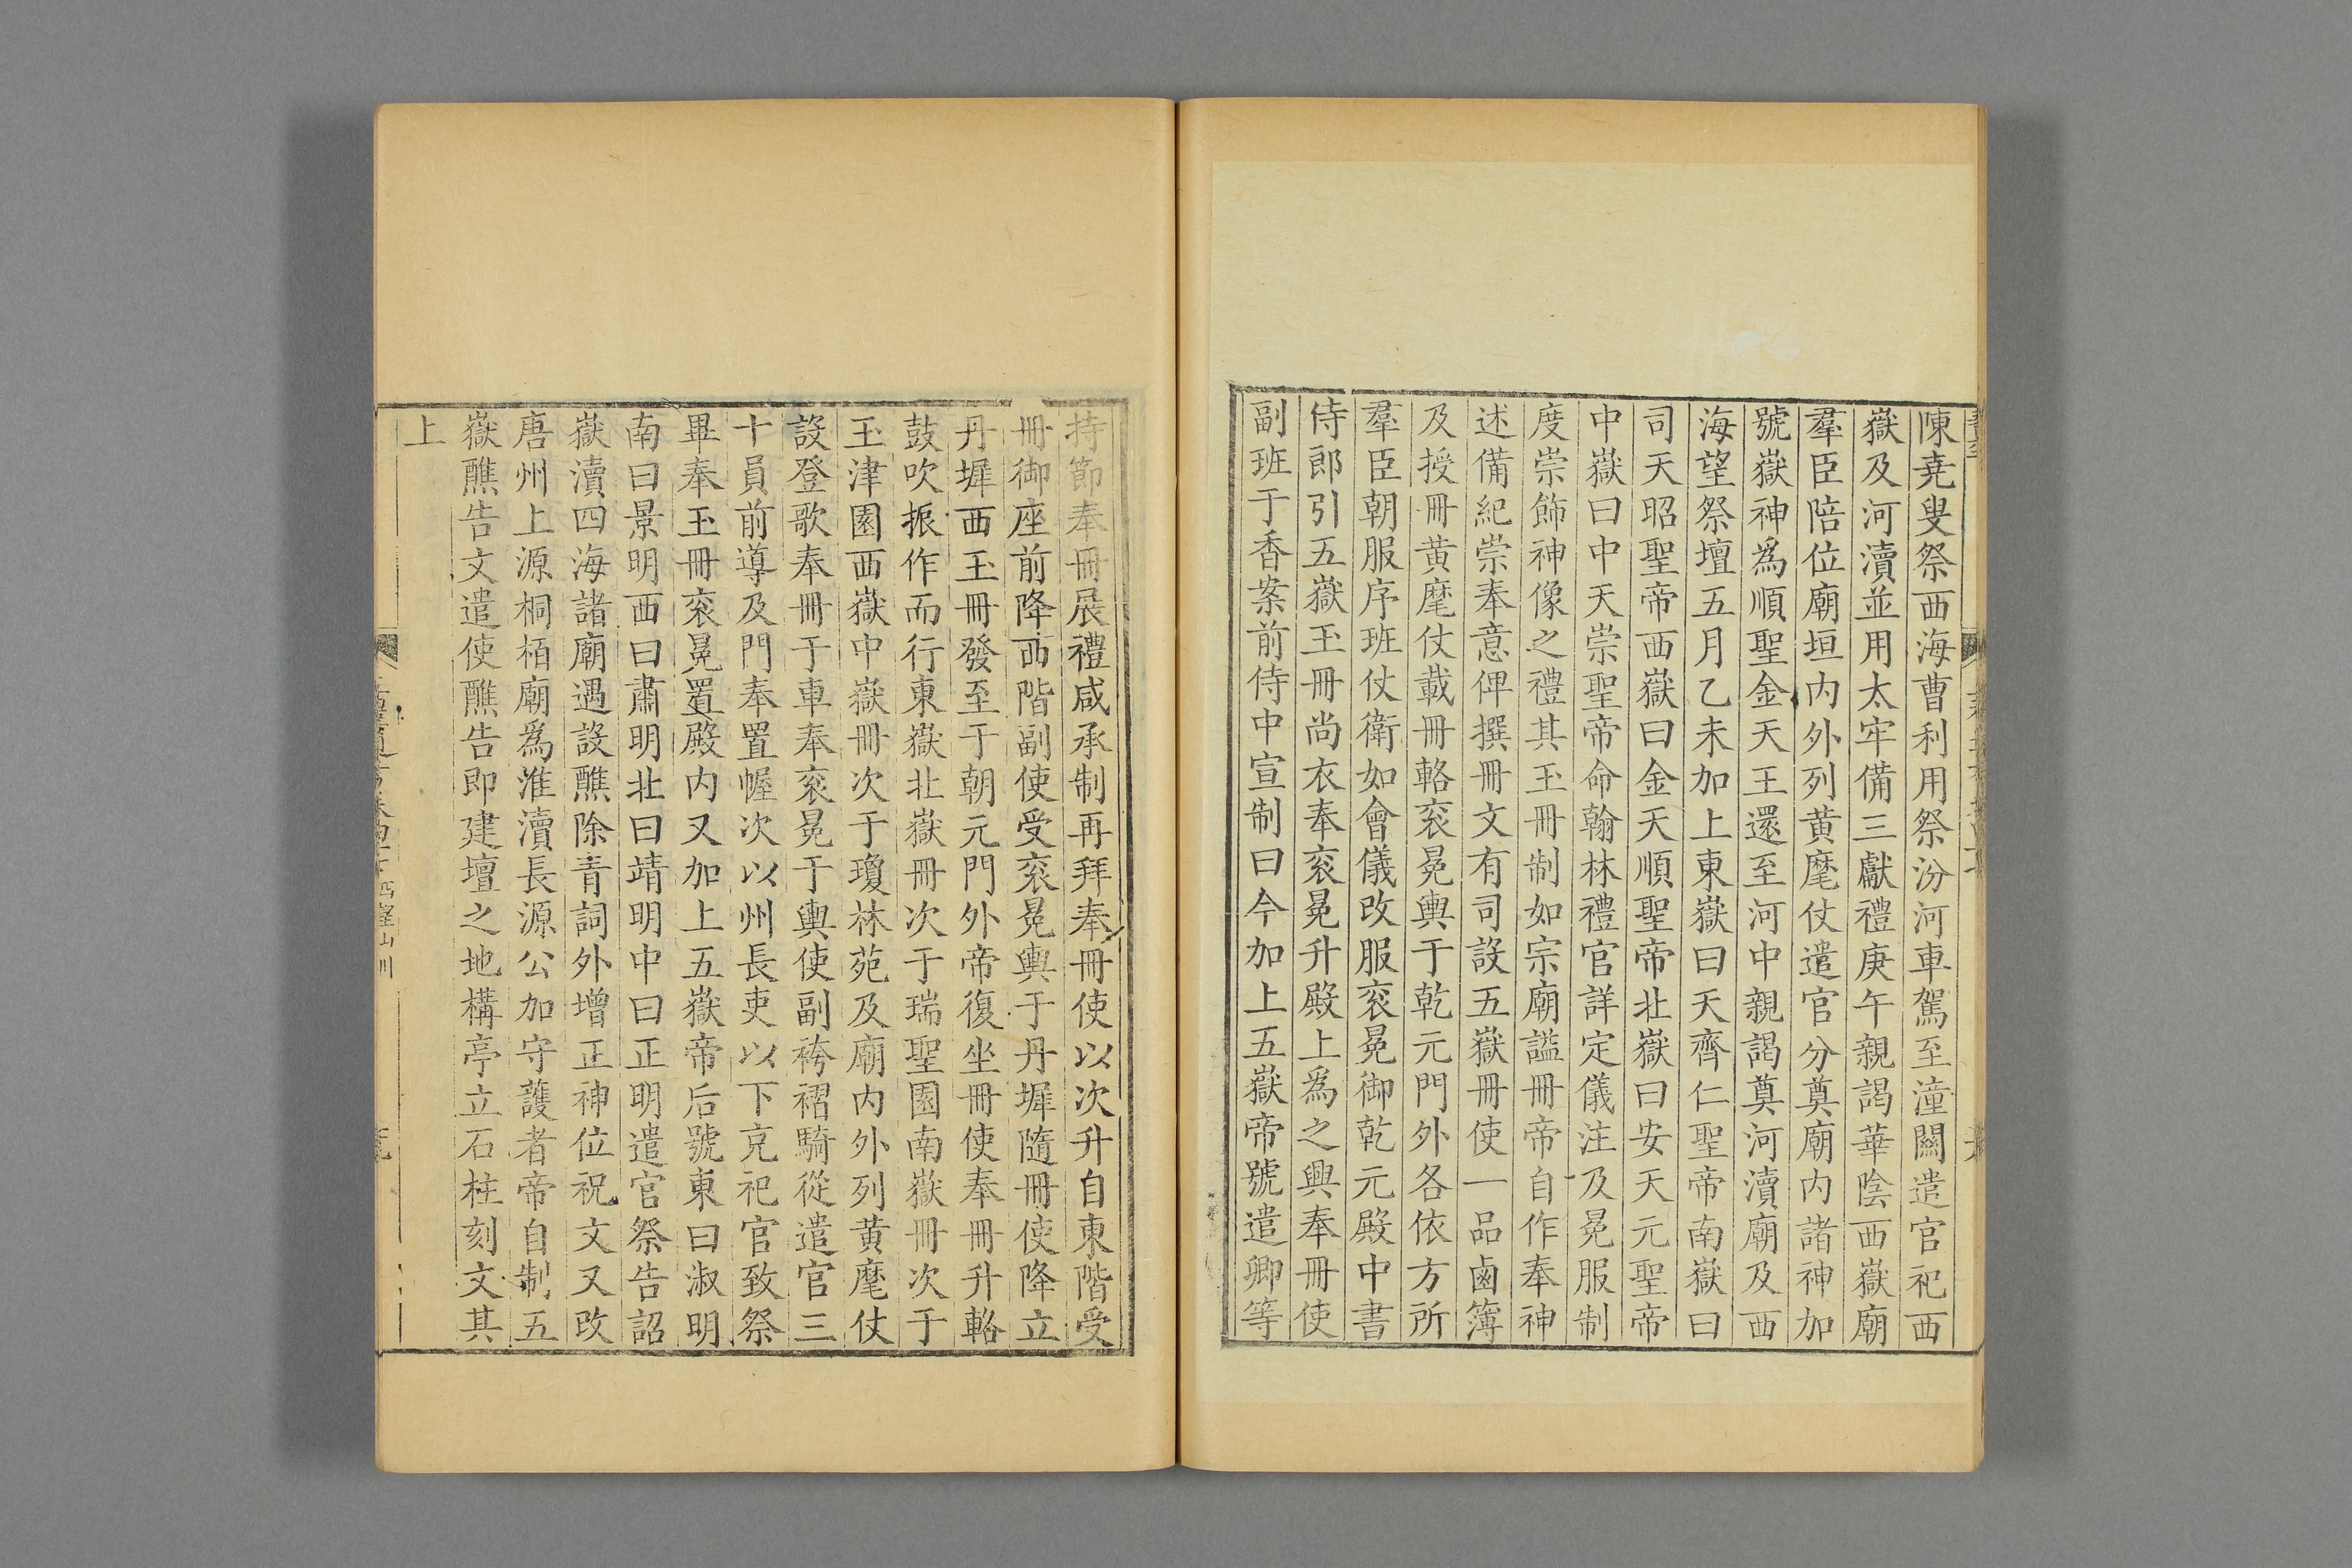 陳堯叟祭西海曹利用祭汾河車駕至潼關遣官祀西
嶽及河瀆並用太牢備三獻禮庚午親謁華陰西嶽廟
羣臣陪位廟垣内外列黄麾仗遣官分奠廟内諸神加
號嶽神爲順聖金天王還至河中親謁奠河瀆廟及西
海望祭壇五月乙未加上東嶽曰天齊仁聖帝南嶽曰
司天昭聖帝西嶽曰金天順聖帝北嶽曰安天元聖帝
中嶽曰中天崇聖帝命翰林禮官詳定儀注及冕服制
度崇飾神像之禮其玉冊制如宗廟謚冊帝自作奉神
述備紀崇奉意俾撰冊文有司設五嶽冊使一品鹵簿
及授冊黄麾仗載冊輅衮冕輿于乾元門外各依方所
羣臣朝服序班仗衛如會儀改服衮冕御乾元殿中書
侍郎引五嶽玉冊尚衣奉衮冕升殿上爲之興奉冊使
副班于香案前侍中宣制曰今加上五嶽帝號遣卿等
持節奉冊展禮咸承制再拜奉冊使以次升自東階受
冊御座前降西階副使受衮冕輿于丹墀隨冊使降立
丹墀西玉冊發至于朝元門外帝復坐冊使奉冊升輅
鼓吹振作而行東嶽北嶽冊次于瑞聖園南嶽冊次于
玉津園西嶽中嶽冊次于瓊林苑及廟内外列黄麾仗
設登歌奉冊于車奉衮冕于輿使副袴褶騎從遣官三
十員前導及門奉置幄次以州長吏以下充祀官致祭
畢奉玉冊衮冕置殿内又加上五嶽帝后號東曰淑明
南曰景明西曰肅明北曰靖明中曰正明遣官祭告詔
嶽瀆四海諸廟遇設醮除青詞外增正神位祝文又改
唐州上源桐栢廟爲淮瀆長源公加守護者帝自制五
嶽醮告文遣使醮告即建壇之地構亭立石柱刻文其
上